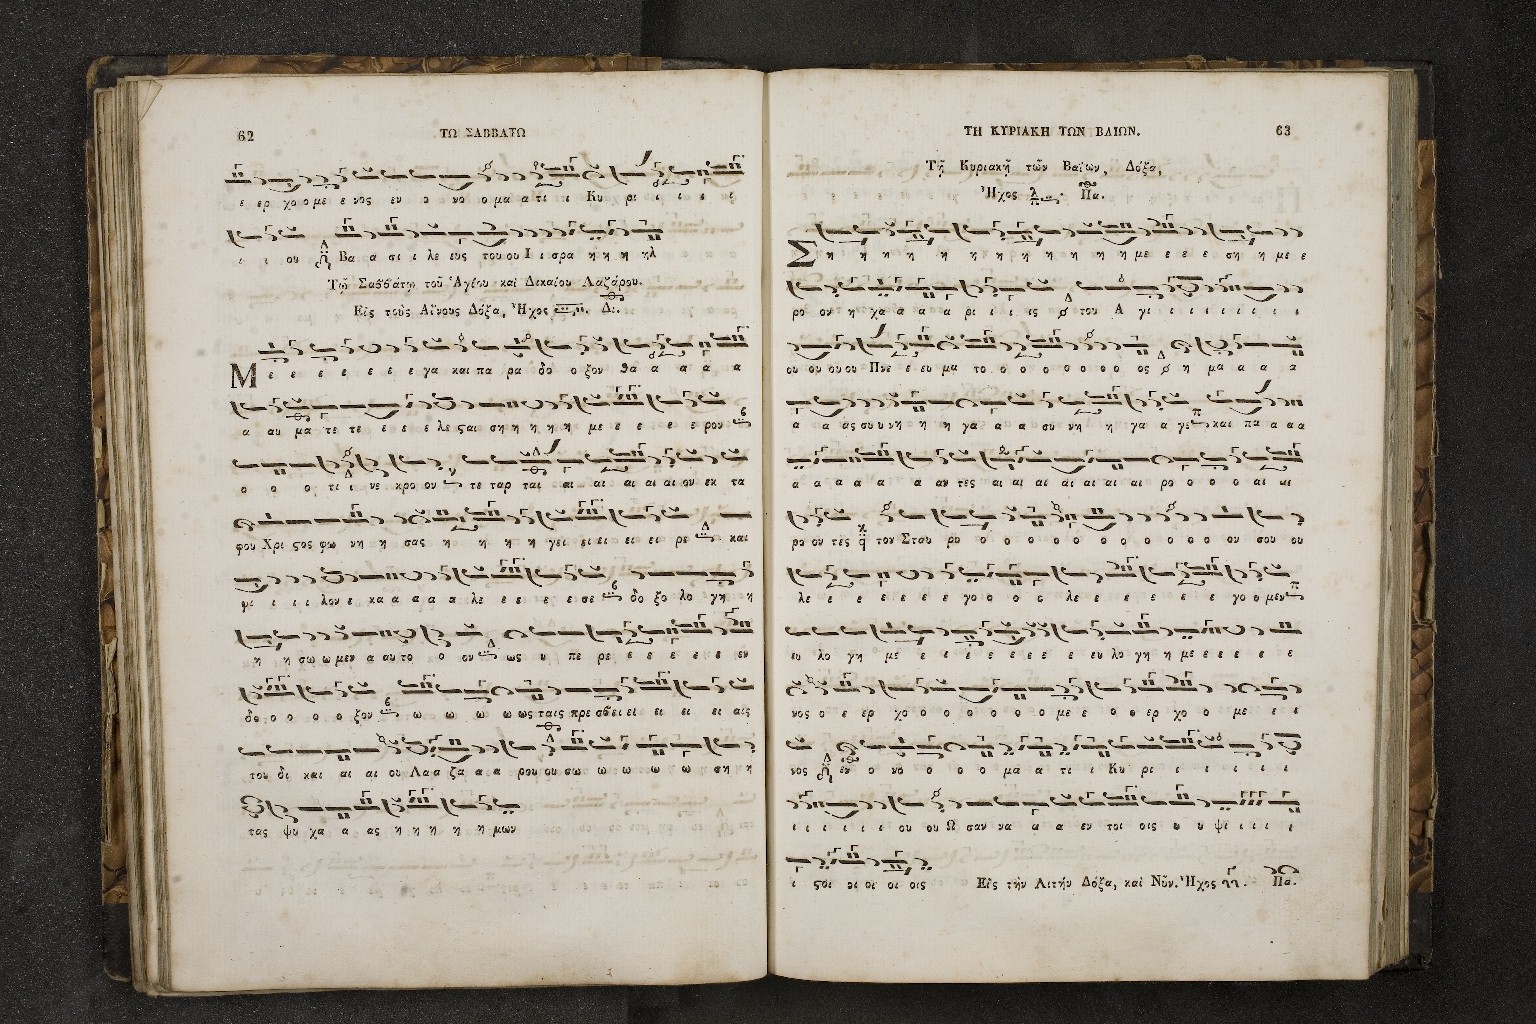 62
ΤΩ ΣΑΒΒΑΤΩ
ε ερ χο ο με ε νος εν ο νο ο μα α τι ι Κυ ρι ι ι ε ι
ι ι ου Βα α σι ι λε ευς του ου Ι ι σρα η η η ηλ
Τῷ Σαββάτῳ τοῦ Ἁγίου καὶ Δικαίου Λαζάρου.
Εἰς τοὺς Αἴνους Δόξα, Ἦχος Δι.
Μ ε ε ε ε ε ε ε γα και πα ρα δο ο ξον θα α α α α
α αυ μα τε τε ε ε ε λε ςαι ση η η η η με ε ε ε ε ρον
ο ο ο τι ι νε κρο ον τε ταρ ται αι αι αι αι αι ον εκ τα
φου Χρι ςος φω νη η σας η η η η γει ει ει ει ει ει ρε και
ψι ι ι ι λον ε κα α α α α λε ε ε ε ε σε δο ξο λο γη η
η η σω ω μεν α αυ το ο ον ως υ πε ρε ε ε ε ε ε εν
δο ο ο ο ο ξον ω ω ω ω ως ταις πρε σβει ει ει ει ει αις
του δι και αι αι ου Λαα ζα α α ρου ου σω ω ω ω ω ση η
τας ψυ χα α ας η η η η η μων
ΤΗ ΚΥΡΙΑΚΗ ΤΩΝ ΒΑΙΩΝ.
63
Τῇ Κυριακῇ τῶν Βαΐων, Δόξα,
Ἦχος Πα.
Σ η η η η η η η η η η η με ε ε ε ση η με ε
ρο ον η χα α α α ρι ι ι ις του Α γι ι ι ι ι ι ι ι
ου ου ου ου Πνε ε ευ μα το ο ο ο ο ο ο ο ος η μα α α α
α α ας συ υ νη η η γα α α συ νη η γα α γε και πα α α α
α α α α α α αν τες αι αι αι αι αι αι αι ρο ο ο ο αι αι
ρο ον τες τον Σταυ ρο ο ο ο ο ο ο ο ο ο ο ο ον σου ου
λε ε ε ε ε ε ε γο ο ο ο λε ε ε ε ε ε γο ο μεν
ευ λο γη με ε ε ε ε ε ε ε ε ευ λο γη η με ε ε ε ε ε
νος ο ε ερ χο ο ο ο ο ο ο με ε ο ο ερ χο ο με ε ε
νος εν ο νο ο ο ο μα α τι ι Κυ ρι ι ι ι ι ι
ι ι ι ι ι ου ου Ω σαν να α α εν τοι οις υ υ ψι ι ι ι
ι ςοι οι οι οι οις Εἰς τὴν Λιτήν Δόξα, καὶ Νῦν. Ἦχος Πα.